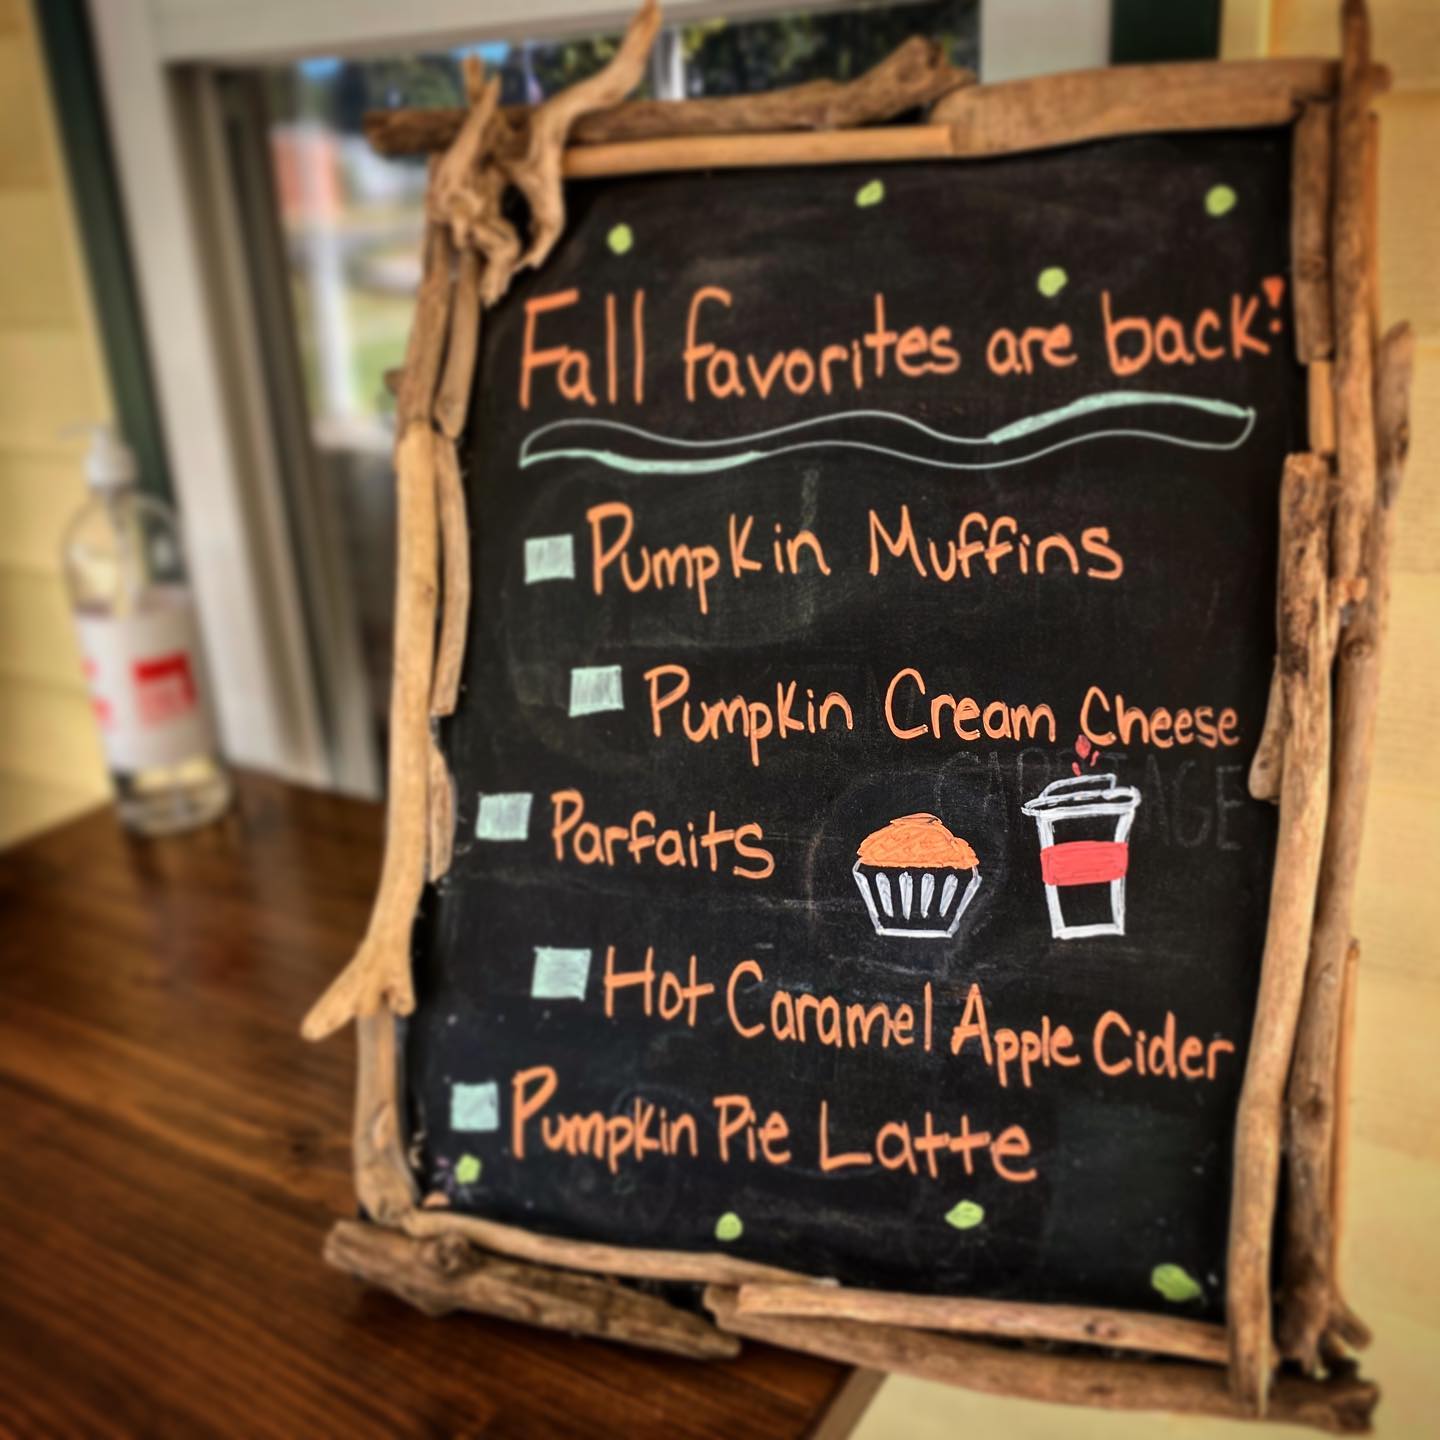 Fall favorites are back!
Pumpkin Muffins
Pumpkin Cream Cheese
Parfaits
Hot Caramel Apple Cider
Pumpkin Pie Latte